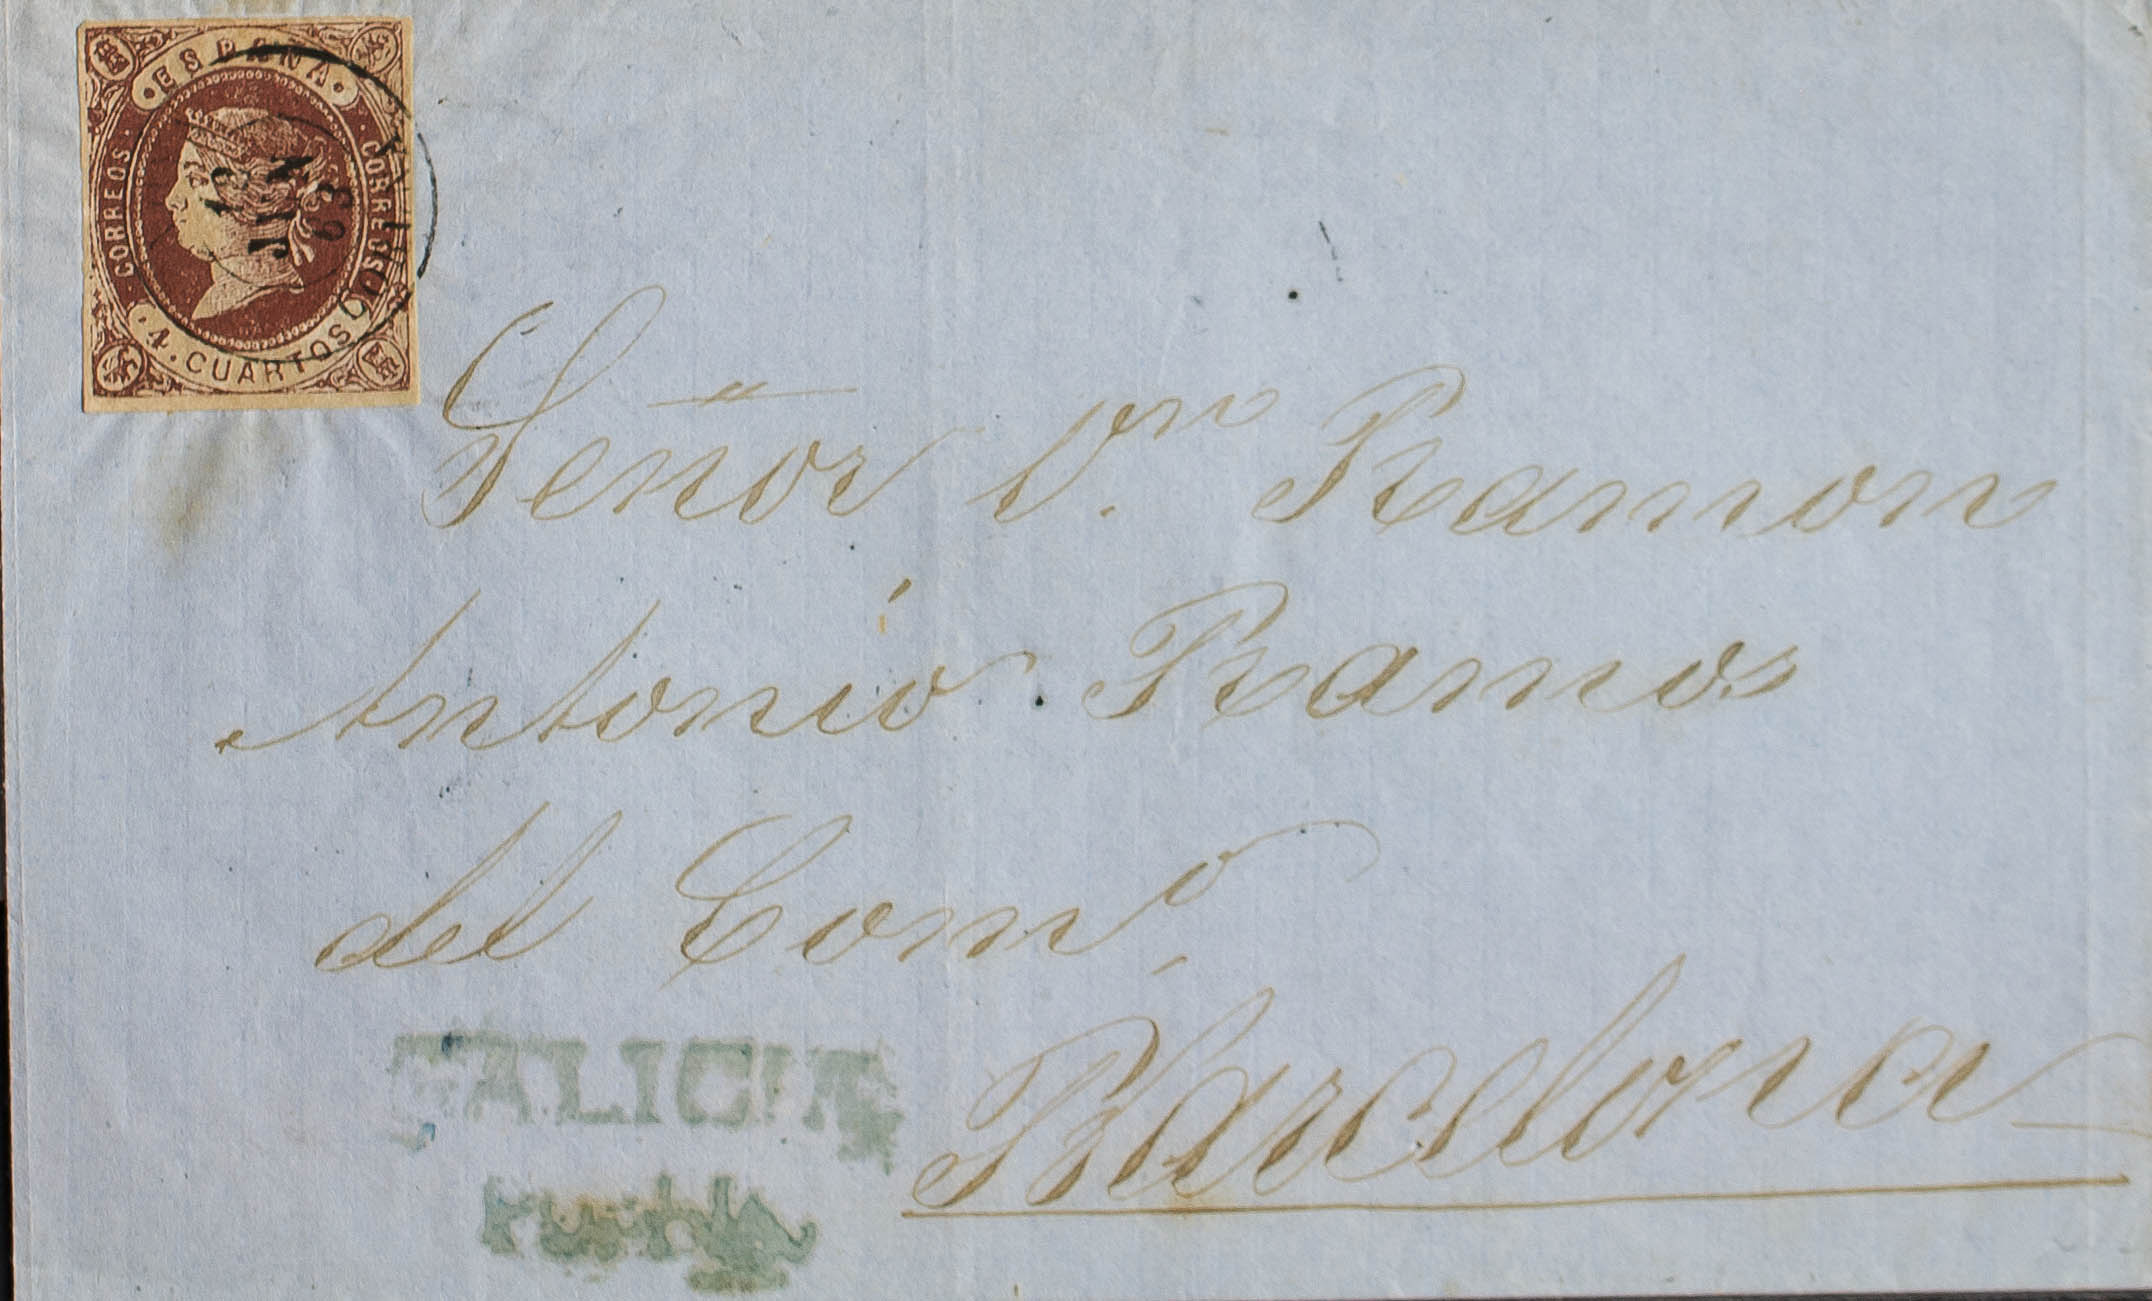 ESPAÑA
CORREOS
CORREOS
4. CUARTOS
12
JUN
63
Señor Dn. Ramon
Antonio Ramos
del Como.
Barcelona
GALICIA